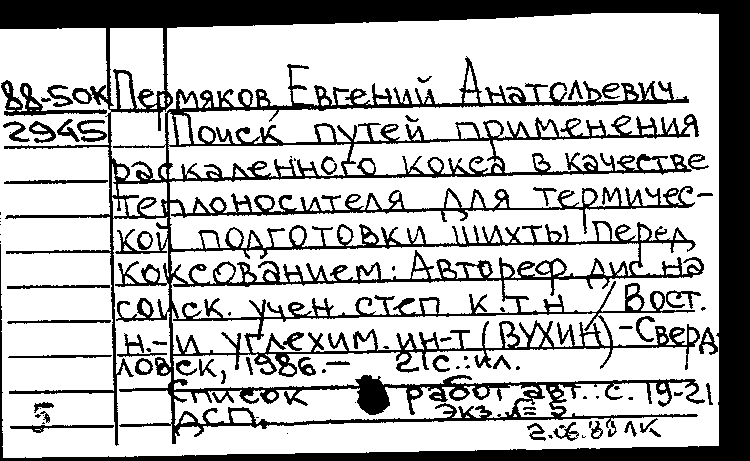 88-50к Пермяков, Евгений Анатольевич.
2945 Поиск путей применения
раскаленного кокса в качестве
теплоносителя для термичес-
кой подготовки шихты перед
коксованием: Автореф. дис. на
соиск. учен. степ. к.т.н. / Вост.
н.-и. углехим. ин-т (ВУХИН) - Сверд-
ловск, 1986. - 21 с.: ил.
Список работ авт.: с. 19-21.
5 ДСП. экз. № 5.
2.06.88 ЛК